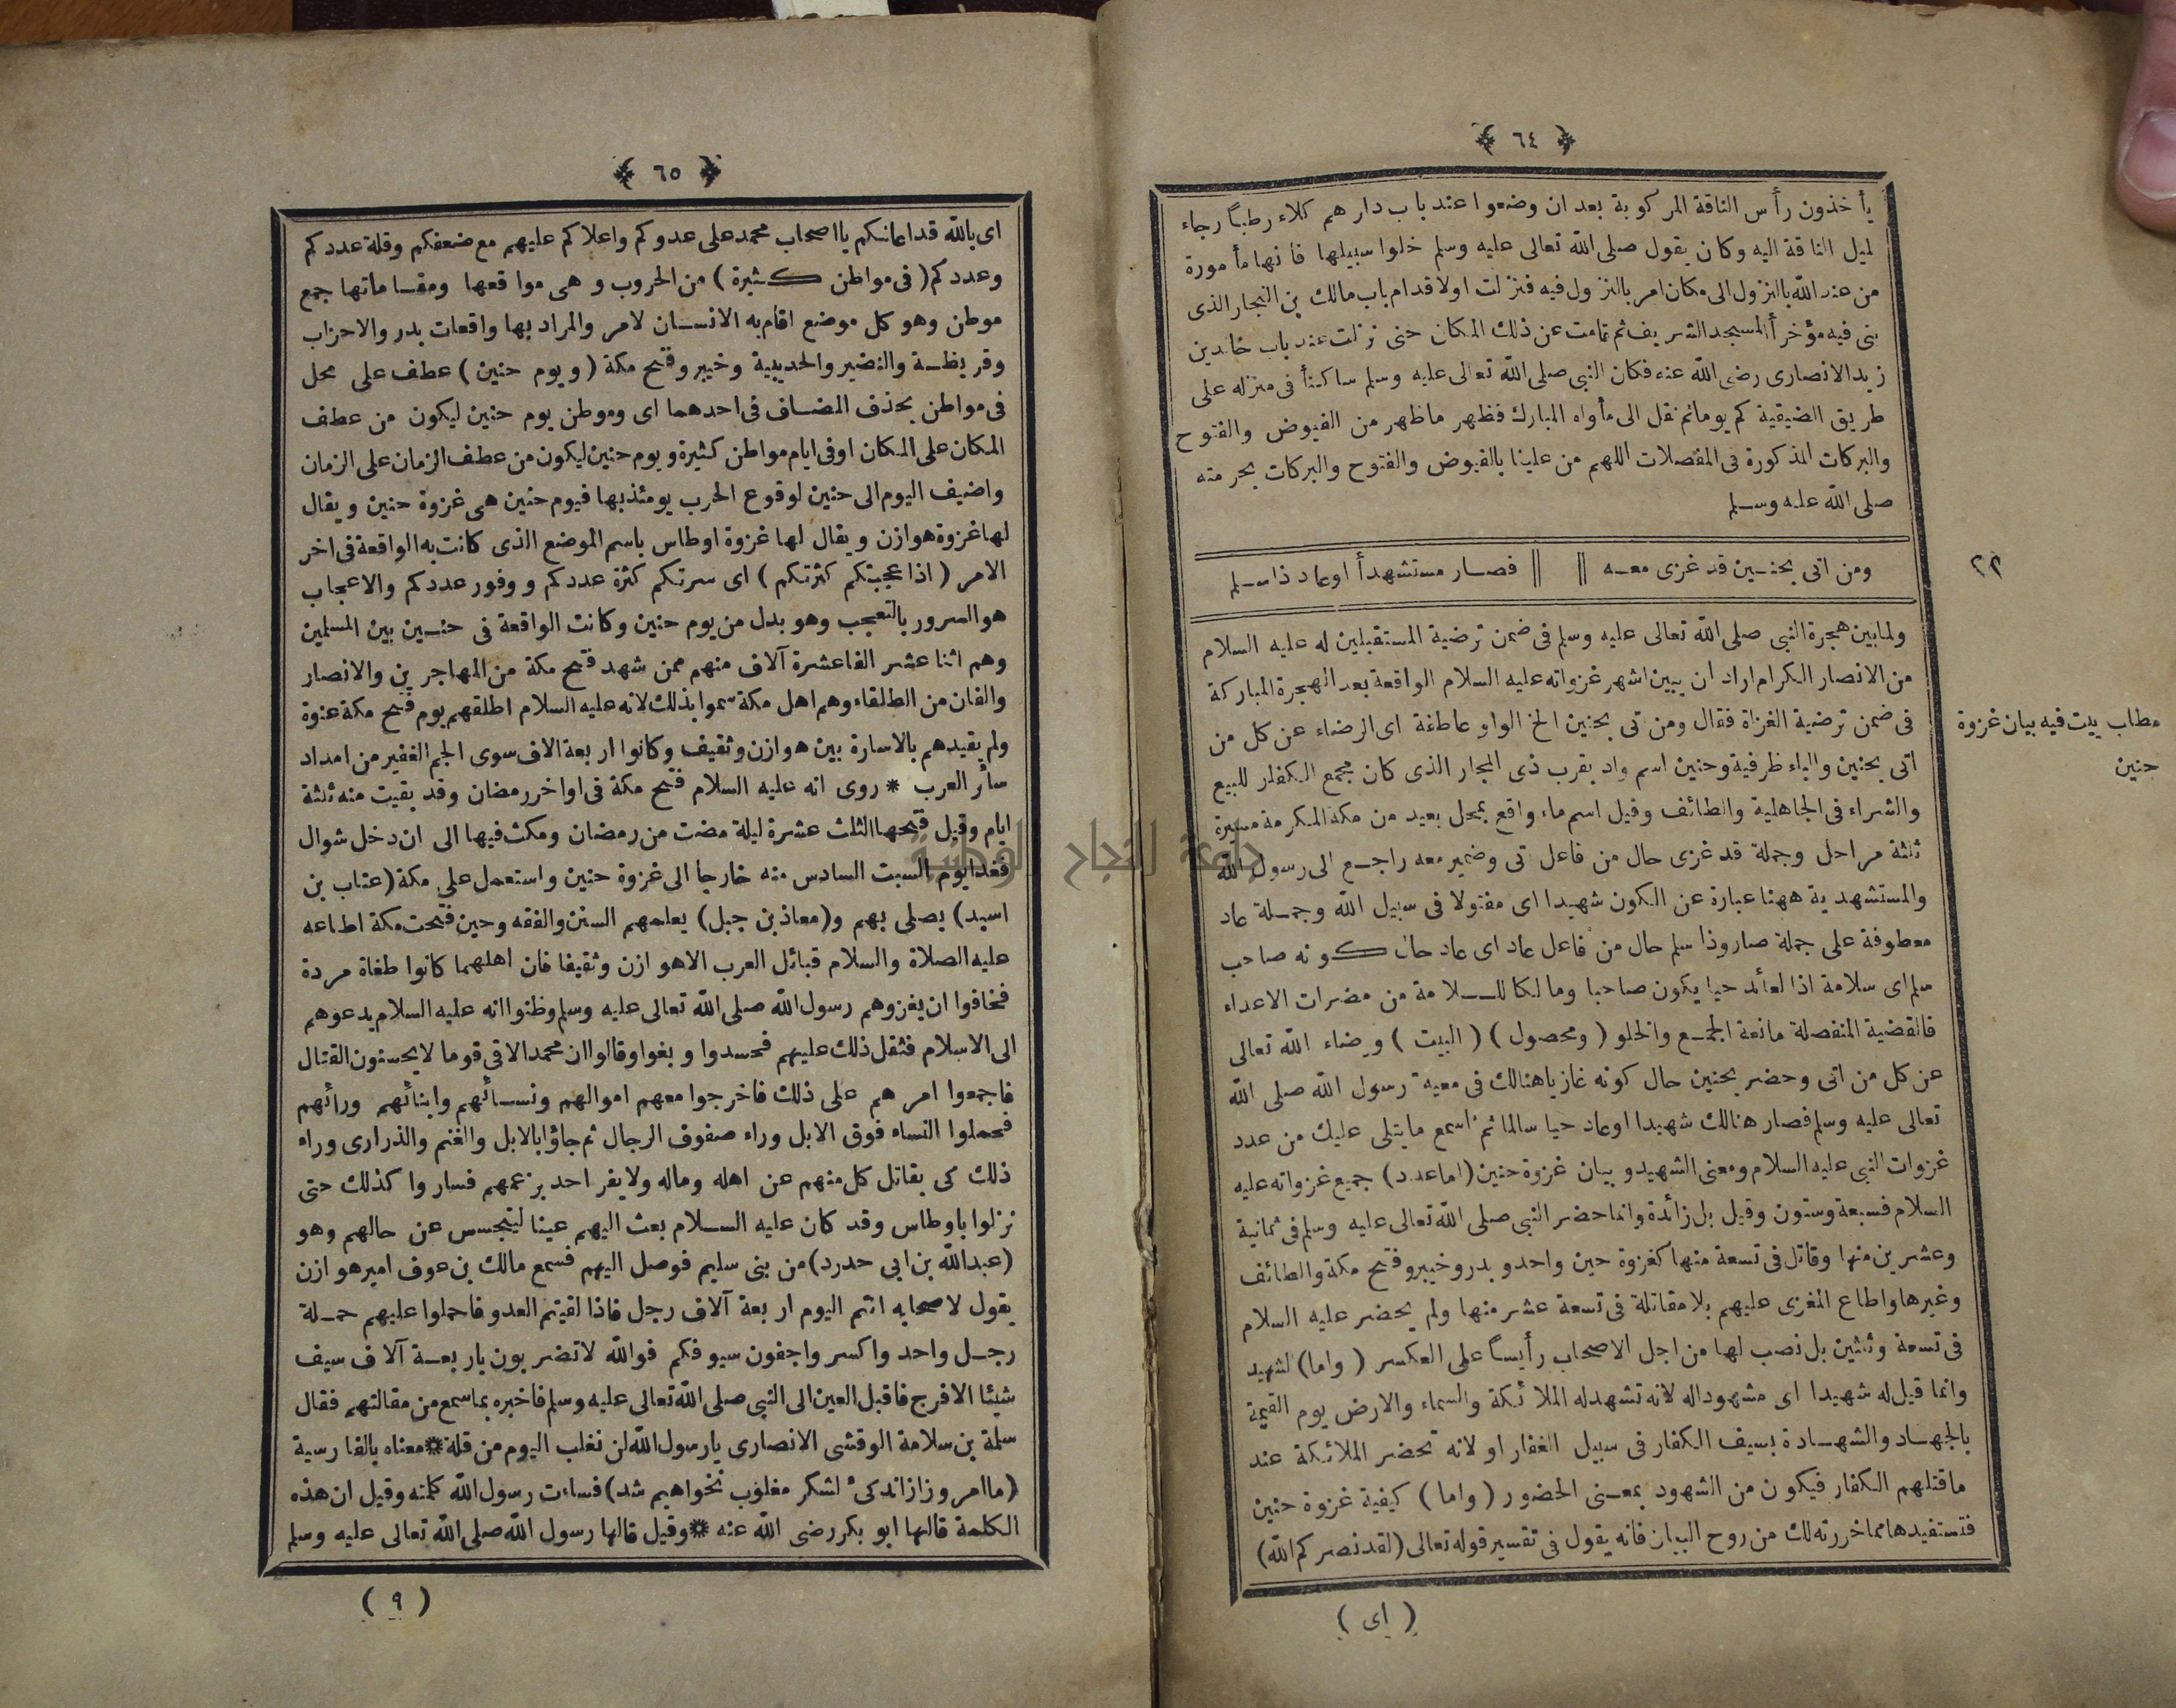 ﴿ ٦٤ ﴾
يأخذون رأس الناقة المركوبة بعد ان وضعوا عند باب دارهم كلاء رطباً رجاء
لميل الناقة اليه وكان يقول صلى الله تعالى عليه وسلم خلوا سبيلها فانها مأمورة
من عند الله بالنزول الى مكان امر بالنزول فيه فنزلت اولا قدام باب مالك بن النجار الذى
بنى فيه مؤخراً المسجد الشريف ثم قامت عن ذلك المكان حتى نزلت عند باب خالد بن
زيد الانصارى رضى الله عنه فكان النبى صلى الله تعالى عليه وسلم ساكناً فى منزله على
طريق الضيفية كم يوما ثم نقل الى مأواه المبارك فظهر ماظهر من الفيوض والفتوح
والبركات المذكورة فى المفصلات اللهم من علينا بالفيوض والفتوح والبركات بحرمته
صلى الله عليه وسلم
ومن اتى بحنين قد غزى معه || || فصار مستشهداً اوعاد ذاسلم
٢٢
ولما بين هجرة النبى صلى الله تعالى عليه وسلم فى ضمن ترضية المستقبلين له عليه السلام
من الانصار الكرام اراد ان يبين اشهر غزواته عليه السلام الواقعة بعد الهجرة المباركة
فى ضمن ترضية الغزاة فقال ومن تى بحنين الخ الواو عاطفة اى الرضاء عن كل من
مطلب بيت فيه بيان غزوة
حنين
اتى بحنين والباء ظرفية وحنين اسم واد بقرب ذى المجاز الذى كان مجمع الكفار للبيع
والشراء فى الجاهلية والطائف وقيل اسم ماء واقع بمحل بعيد من مكة المكرمة مسيرة
ثلثة مراحل وجملة قد غزى حال من فاعل تى وضمير معه راجع الى رسول الله
والمستشهدية ههنا عبارة عن الكون شهيدا اى مقتولا فى سبيل الله وجملة عاد
معطوفة على جملة صار وذا سلم حال من فاعل عاد اى عاد حال كونه صاحب
سلم اى سلامة اذا لعائد حيا يكون صاحبا ومالكا للسلامة من مضرات الاعداء
فالقضية المنفصلة مانعة الجمع والخلو ( ومحصول ) ( البيت ) ورضاء الله تعالى
عن كل من اتى وحضر بحنين حال كونه غازيا هنالك فى معية رسول الله صلى الله
تعالى عليه وسلم فصار هنالك شهيدا اوعاد حيا سالما ثم اسمع مايتلى عليك من عدد
غزوات النبى عليه السلام ومعنى الشهيد وبيان غزوة حنين (اما عدد) جميع غزواته عليه
السلام فسبعة وستون وقيل بل زائدة وانما حضر النبى صلى الله تعالى عليه وسلم فى ثمانية
وعشرين منها وقاتل فى تسعة منها كغزوة حين واحد وبدر وخيبر وفتح مكة والطائف
وغيرها واطاع المغزى عليهم بلا مقاتلة فى تسعة عشر منها ولم يحضر عليه السلام
فى تسعة وثلثين بل نصب لها من اجل الاصحاب رأيساً على العكسر ( واما ) لشهيد
وانما قيل له شهيدا اى مشهوداله لانه تشهدله الملائكة والسماء والارض يوم القيمة
بالجهاد والشهادة بسيف الكفار فى سبيل الغفار او لانه تحضر الملائكة عند
ما قتلهم الكفار فيكون من الشهود بمعنى الحضور ( واما ) كيفية غزوة حنين
فتستفيدها مما خررته لك من روح البيان فانه يقول فى تفسير قوله تعالى (لقد نصركم الله)
( اى )
﴿ ٦٥ ﴾
اى بالله قد اعانكم يا اصحاب محمد على عدوكم واعلاكم عليهم مع ضعفكم وقلة عددكم
وعددكم ( فى مواطن كثيرة ) من الحروب وهى مواقعها ومقاماتها جمع
موطن وهو كل موضع اقام به الانسان لامر والمراد بها واقعات بدر والاحزاب
وقريظة والنضير والحديبية وخيبر وفتح مكة ( ويوم حنين ) عطف على محل
فى مواطن بحذف المضاف فى احدهما اى وموطن يوم حنين ليكون من عطف
المكان على المكان اوفى ايام مواطن كثيرة ويوم حنين ليكون من عطف الزمان على الزمان
واضيف اليوم الى حنين لوقوع الحرب يومئذ بها فيوم حنين هى غزوة حنين ويقال
لها غزوة هوازن ويقال لها غزوة اوطاس باسم الموضع الذى كانت به الواقعة فى اخر
الامر ( اذا عجبتكم كثرتكم ) اى سرتكم كثرة عددكم ووفور عددكم والاعجاب
هو السرور بالتعجب وهو بدل من يوم حنين وكانت الواقعة فى حنين بين المسلمين
وهم اثنا عشر الفا عشرة آلاف منهم ممن شهد فتح مكة من المهاجرين والانصار
والفان من الطلقاء وهم اهل مكة سموا بذلك لانه عليه السلام اطلقهم يوم فتح مكة عنوة
ولم يقيدهم بالاسارة بين هوازن وثقيف وكانوا اربعة الاف سوى الجم الغفير من امداد
سائر العرب * روى انه عليه السلام فتح مكة فى اواخر رمضان وقد بقيت منه ثلثة
ايام وقيل فتحها الثلث عشرة ليلة مضت من رمضان ومكث فيها الى ان دخل شوال
فغدا يوم السبت السادس منه خارجا الى غزوة حنين واستعمل على مكة (عتاب بن
اسيد) يصلى بهم و(معاذ بن جبل) يعلمهم السنن والفقه وحين فتحت مكة اطاعه
عليه الصلاة والسلام قبائل العرب الاهوازن وثقيفا فان اهلهما كانوا طغاة مردة
فخافوا ان يغزوهم رسول الله صلى الله تعالى عليه وسلم وظنوا انه عليه السلام يدعوهم
الى الاسلام فثقل ذلك عليهم فحسدوا وبغوا وقالوا ان محمدا لاقى قوما لا يحسنون القتال
فاجمعوا امرهم على ذلك فاخرجوا معهم اموالهم ونسائهم وابنائهم ورائهم
فحملوا النساء فوق الابل وراء صفوف الرجال ثم جاؤا بالابل والغنم والذرارى وراء
ذلك كى يقاتل كل منهم عن اهله وماله ولا يفر احد بزعمهم فساروا كذلك حتى
نزلوا باوطاس وقد كان عليه السلام بعث اليهم عينا ليتجسس عن حالهم وهو
(عبدالله بن ابى حدرد) من بنى سليم فوصل اليهم فسمع مالك بن عوف امير هوازن
يقول لاصحابه انتم اليوم اربعة آلاف رجل فاذا لقيتم العدو فاحملوا عليهم حملة
رجل واحد واكسر واجفون سيوفكم فوالله لاتضربون باربعة آلاف سيف
شيئا الا فرج فاقبل العين الى النبى صلى الله تعالى عليه وسلم فاخبره بما سمع من مقالتهم فقال
سلمة بن سلامة الوقشى الانصارى يارسول الله لن نغلب اليوم من قلة * معناه بالفارسية
(ما امروز ازاندكئ لشكر مغلوب نخواهيم شد) فساءت رسول الله كلمته وقيل ان هذه
الكلمة قالها ابو بكر رضى الله عنه * وقيل قالها رسول الله صلى الله تعالى عليه وسلم
( ٩ )
جامعة النجاح الوطنية